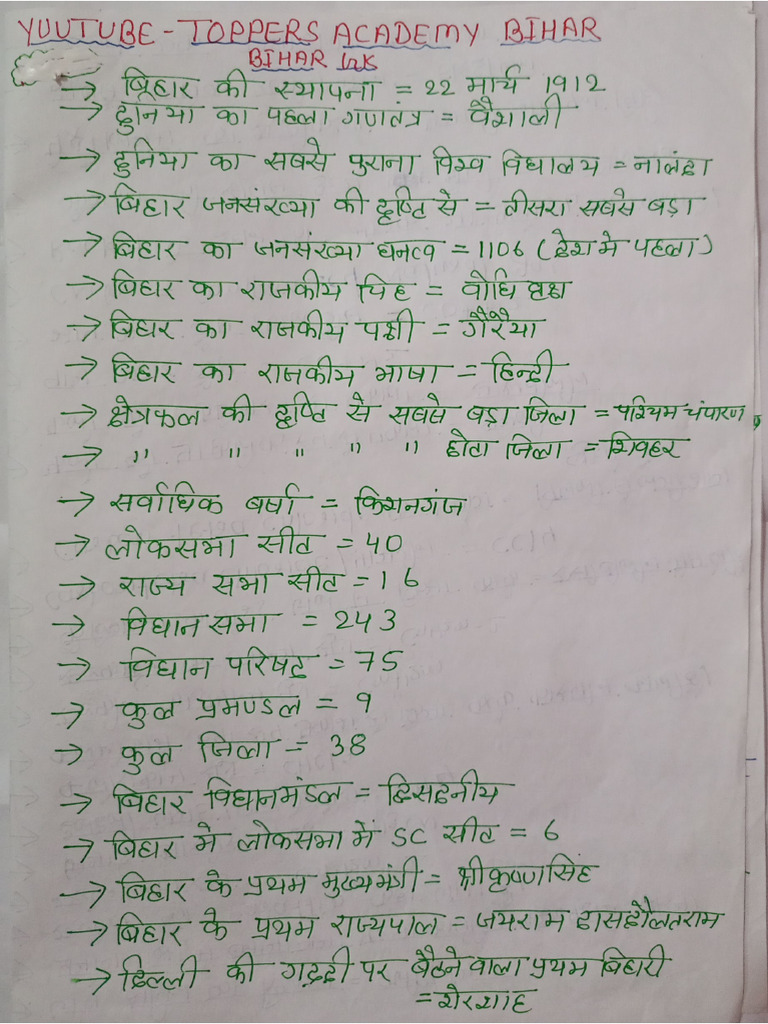 YOUTUBE - TOPPERS ACADEMY BIHAR
BIHAR GK
→ बिहार की स्थापना = 22 मार्च 1912
→ दुनिया का पहला गणतंत्र = वैशाली
→ दुनिया का सबसे पुराना विश्व विद्यालय = नालंदा
→ बिहार जनसंख्या की दृष्टि से = तीसरा सबसे बड़ा
→ बिहार का जनसंख्या घनत्व = 1106 (देश में पहला)
→ बिहार का राजकीय चिह्न = वोधि वृक्ष
→ बिहार का राजकीय पक्षी = गौरैया
→ बिहार का राजकीय भाषा = हिन्दी
→ क्षेत्रफल की दृष्टि से सबसे बड़ा जिला = पश्चिम चंपारण
→ " " " " " छोटा जिला = शिवहर
→ सर्वाधिक बर्षा = किशनगंज
→ लोकसभा सीट = 40
→ राज्य सभा सीट = 16
→ विधान सभा = 243
→ विधान परिषद = 75
→ कुल प्रमण्डल = 9
→ कुल जिला = 38
→ बिहार विधानमंडल = द्विसदनीय
→ बिहार में लोकसभा में SC सीट = 6
→ बिहार के प्रथम मुख्यमंत्री = श्रीकृष्ण सिंह
→ बिहार के प्रथम राज्यपाल = जयराम दासदौलतराम
→ दिल्ली की गद्दी पर बैठने वाला प्रथम बिहारी
= शेरशाह